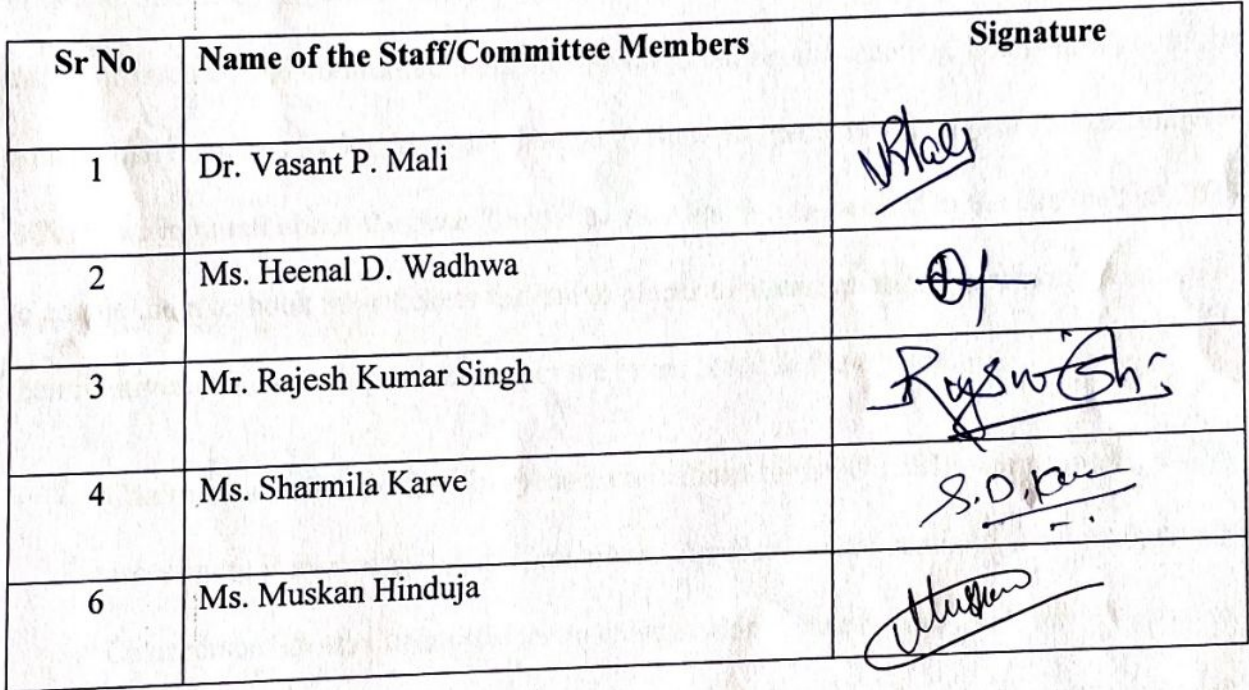 Sr No Name of the Staff/Committee Members Signature
1 Dr. Vasant P. Mali
2 Ms. Heenal D. Wadhwa
3 Mr. Rajesh Kumar Singh
4 Ms. Sharmila Karve S.D.Kar
6 Ms. Muskan Hinduja Muskan